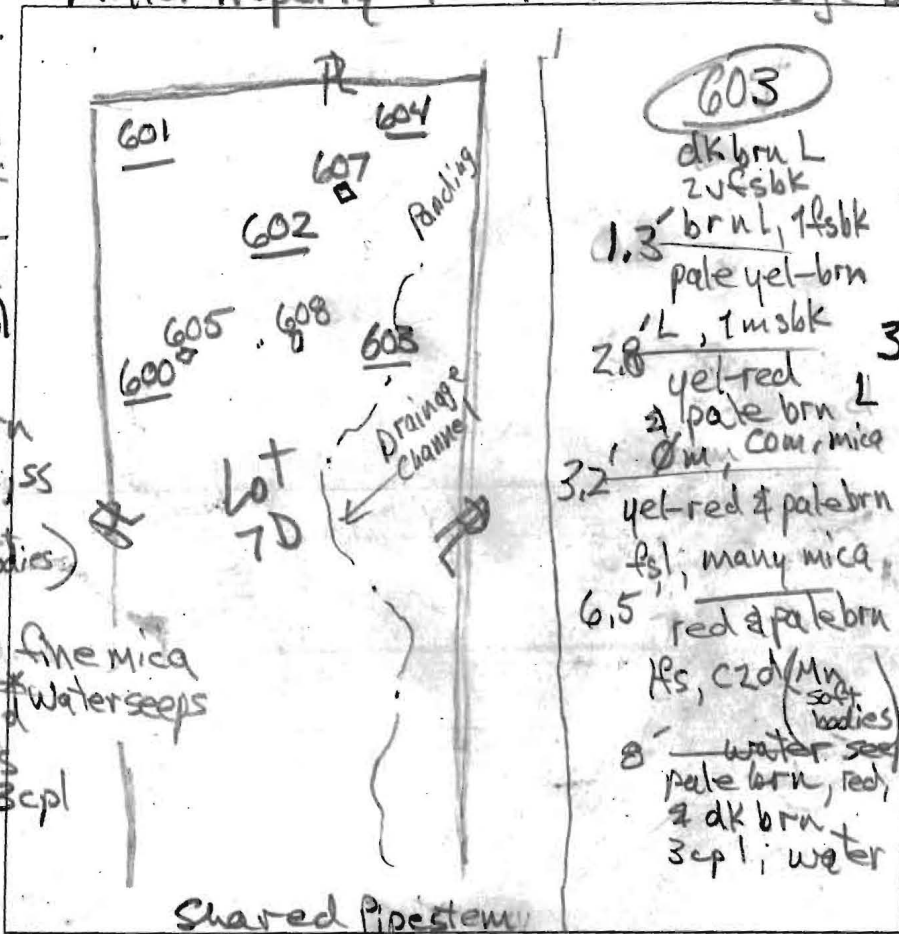 Property
PL
601
604
607
602
Ponding
605
608
600
603
Drainage
Channel
Lot
7D
PL
PL
ss
fine mica
Water seeps
3cpl
Shared Pipestem
603
dk brn L
2vfsbk
1.3' brn L, 1fsbk
pale yel-brn
L, 1msbk
2.8'
yel-red
& pale brn L
Øm, com. mica
3.2'
yel-red & pale brn
fsl; many mica
6.5
red & pale brn
lfs, c2d (Mn
soft
bodies)
8' water seep
pale brn, red,
& dk brn
3cpl; water